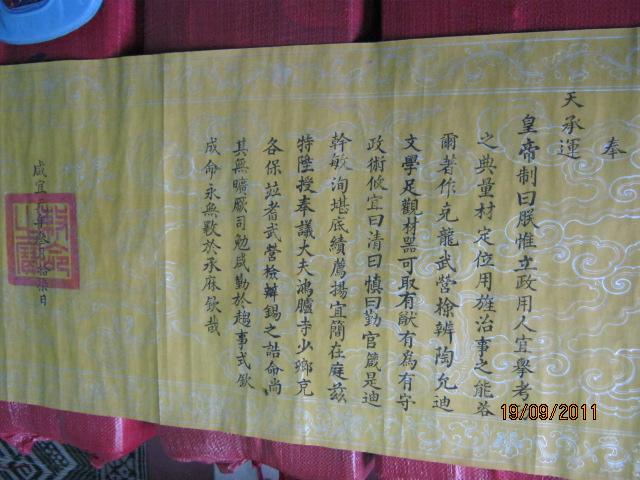 奉
天承運
皇帝制曰朕惟立政用人宜舉考
之典量材定位用旌治事之能咨
爾著作充龍武营捡辨陶允迪
文學足觀材器可取有猷有為有守
政術攸宜曰清曰慎曰勤官箴是迪
幹敏洵堪底績薦揚宜簡在庭兹
特陞授奉議大夫鴻臚寺少卿充
各保並者武营檢辦錫之誥命尚
其無曠厥司勉咸勤於趨事式欽
成命永無斁於承庥欽哉
咸宜元年叁月拾柒日
敕命之寶
19/09/2011